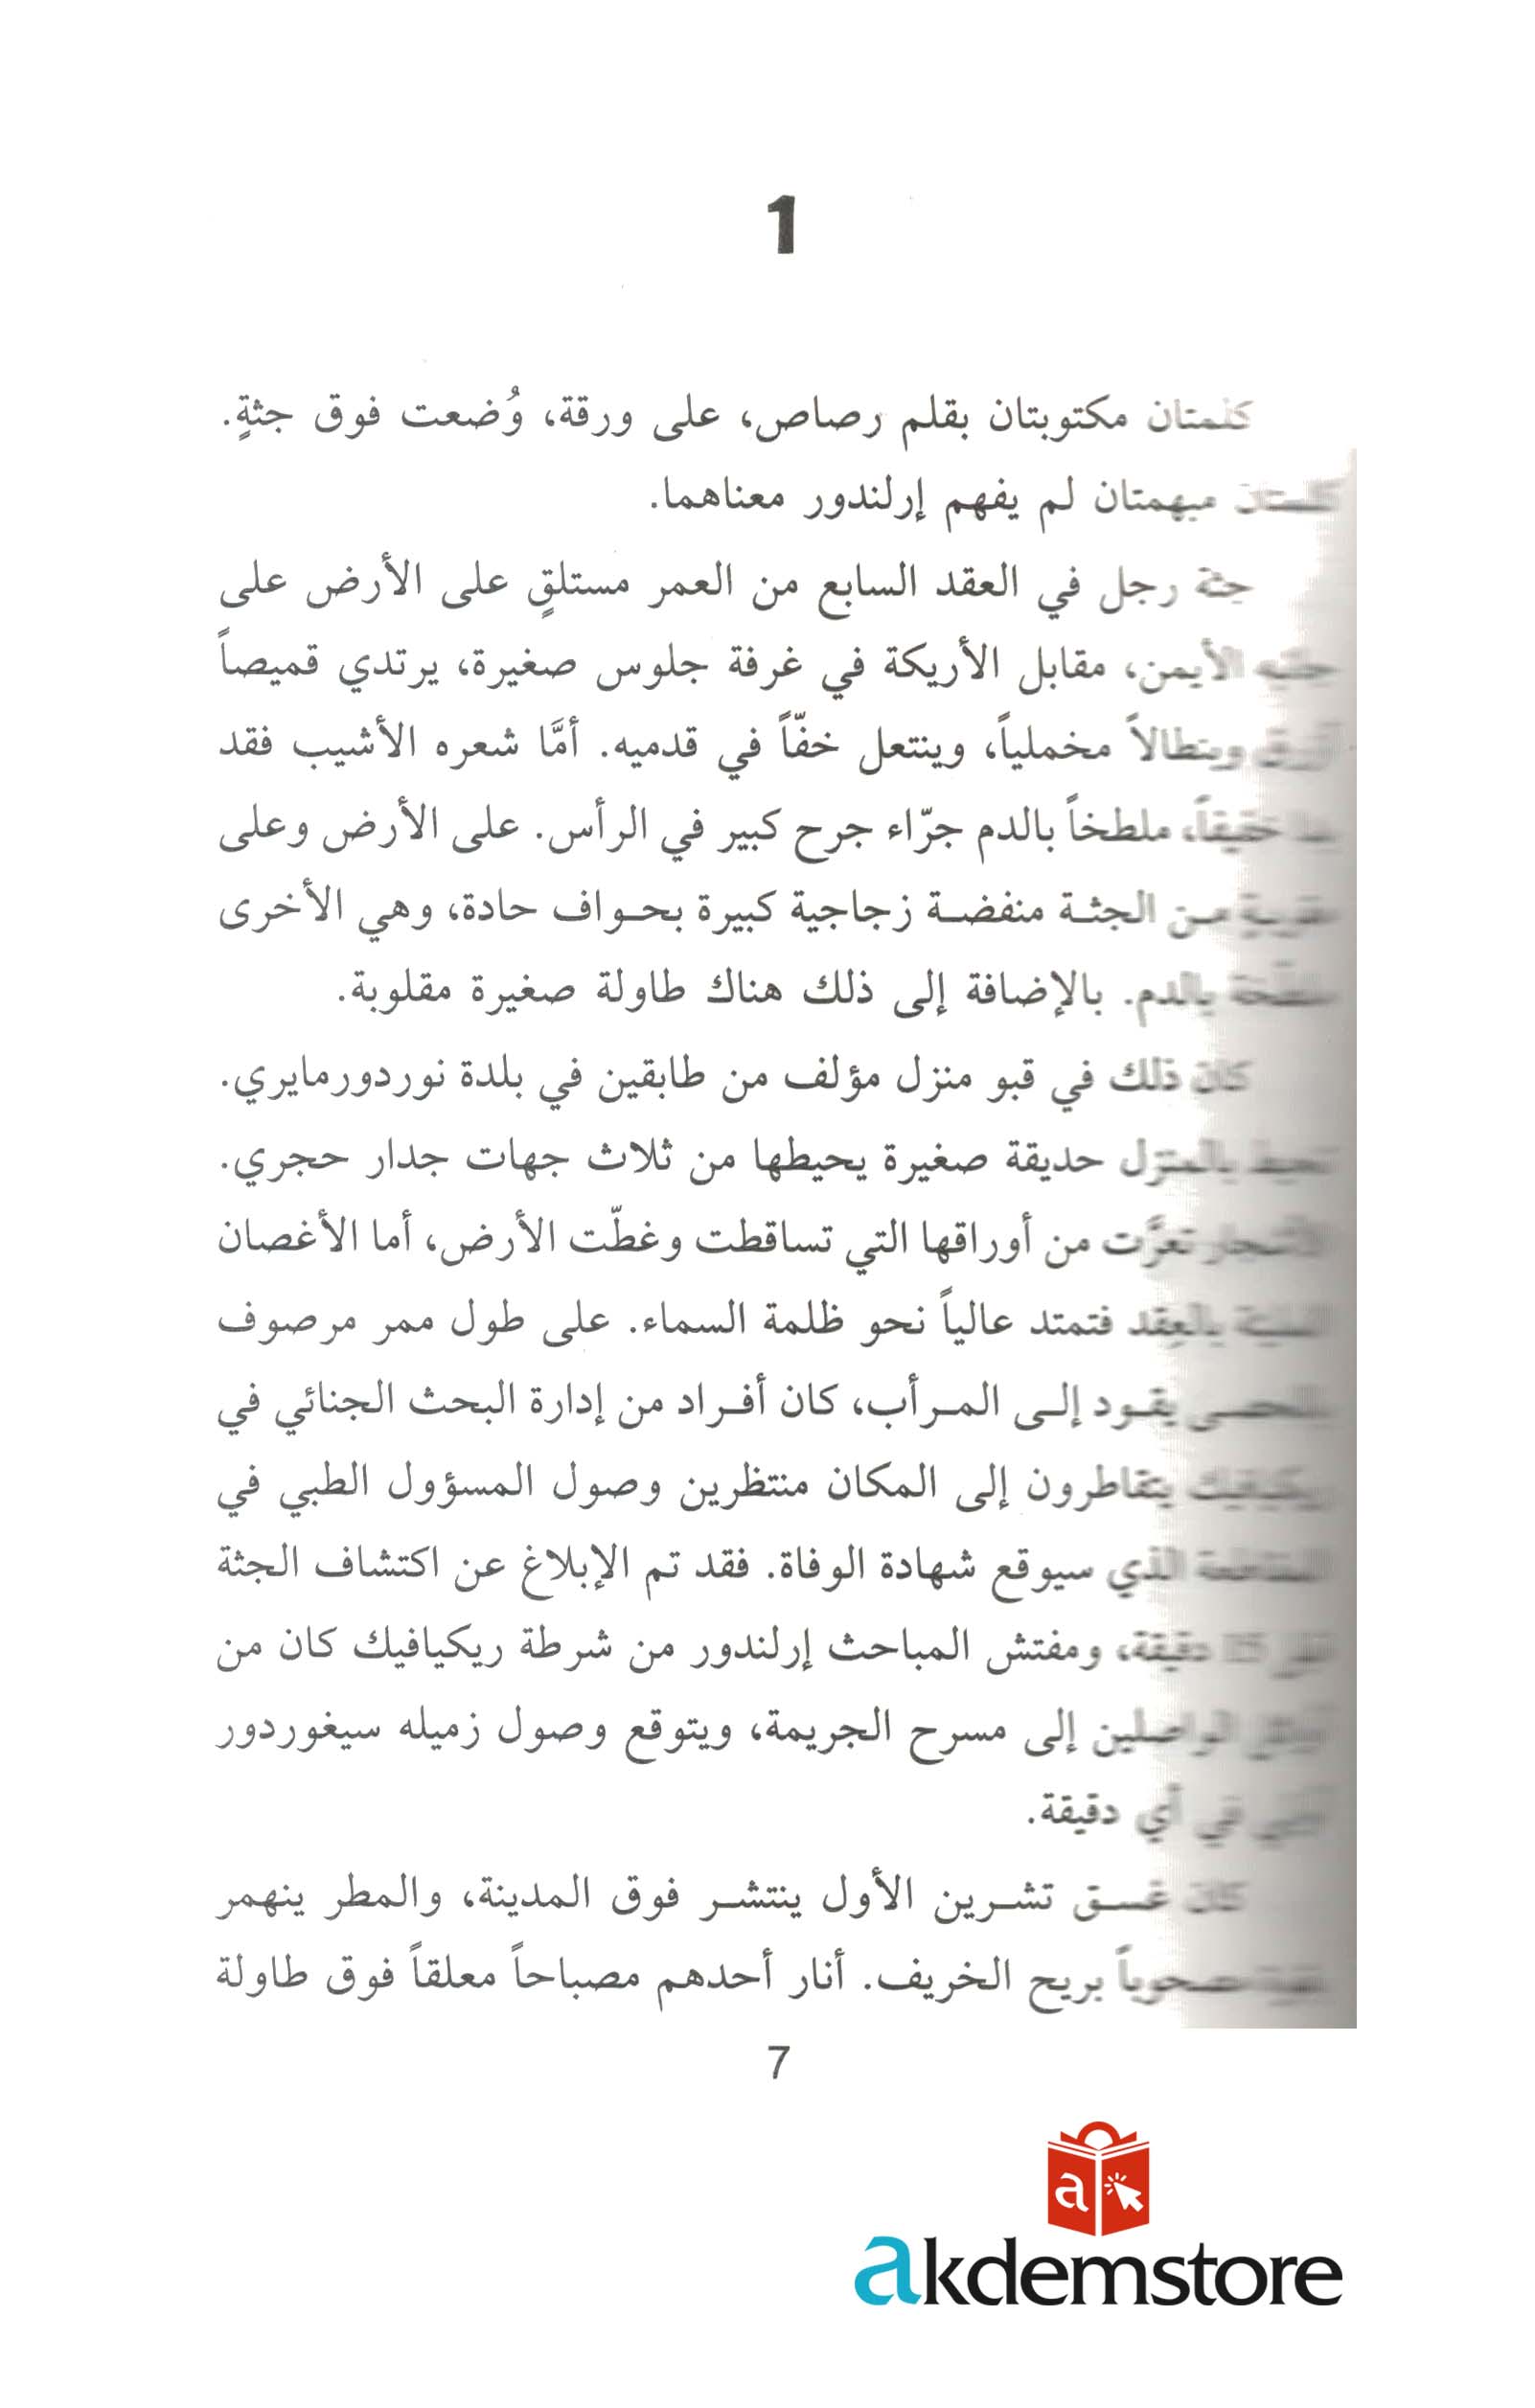 1
كلمتان مكتوبتان بقلم رصاص، على ورقة، وُضعت فوق جثةٍ.
كلمتان مبهمتان لم يفهم إرلندور معناهما.
جثة رجل في العقد السابع من العمر مستلقٍ على الأرض على
جانبه الأيمن، مقابل الأريكة في غرفة جلوس صغيرة، يرتدي قميصاً
أزرق وبنطالاً مخملياً، وينتعل خفّاً في قدميه. أمَّا شعره الأشيب فقد
بدا خفيفاً، ملطخاً بالدم جرّاء جرح كبير في الرأس. على الأرض وعلى
مقربةٍ من الجثة منفضة زجاجية كبيرة بحواف حادة، وهي الأخرى
ملطّخة بالدم. بالإضافة إلى ذلك هناك طاولة صغيرة مقلوبة.
كان ذلك في قبو منزل مؤلف من طابقين في بلدة نوردورمايري.
تحيط بالمنزل حديقة صغيرة يحيطها من ثلاث جهات جدار حجري.
الأشجار تعرَّت من أوراقها التي تساقطت وغطّت الأرض، أما الأغصان
بالعقد فتمتد عالياً نحو ظلمة السماء. على طول ممر مرصوف
بالحصى يقود إلى المرأب، كان أفراد من إدارة البحث الجنائي في
ريكيافيك يتقاطرون إلى المكان منتظرين وصول المسؤول الطبي في
المقاطعة الذي سيوقع شهادة الوفاة. فقد تم الإبلاغ عن اكتشاف الجثة
قبل 15 دقيقة، ومفتش المباحث إرلندور من شرطة ريكيافيك كان من
أوائل الواصلين إلى مسرح الجريمة، ويتوقع وصول زميله سيغوردور
في أي دقيقة.
كان غسق تشرين الأول ينتشر فوق المدينة، والمطر ينهمر
مصحوباً بريح الخريف. أنار أحدهم مصباحاً معلقاً فوق طاولة
7
a
akdemstore